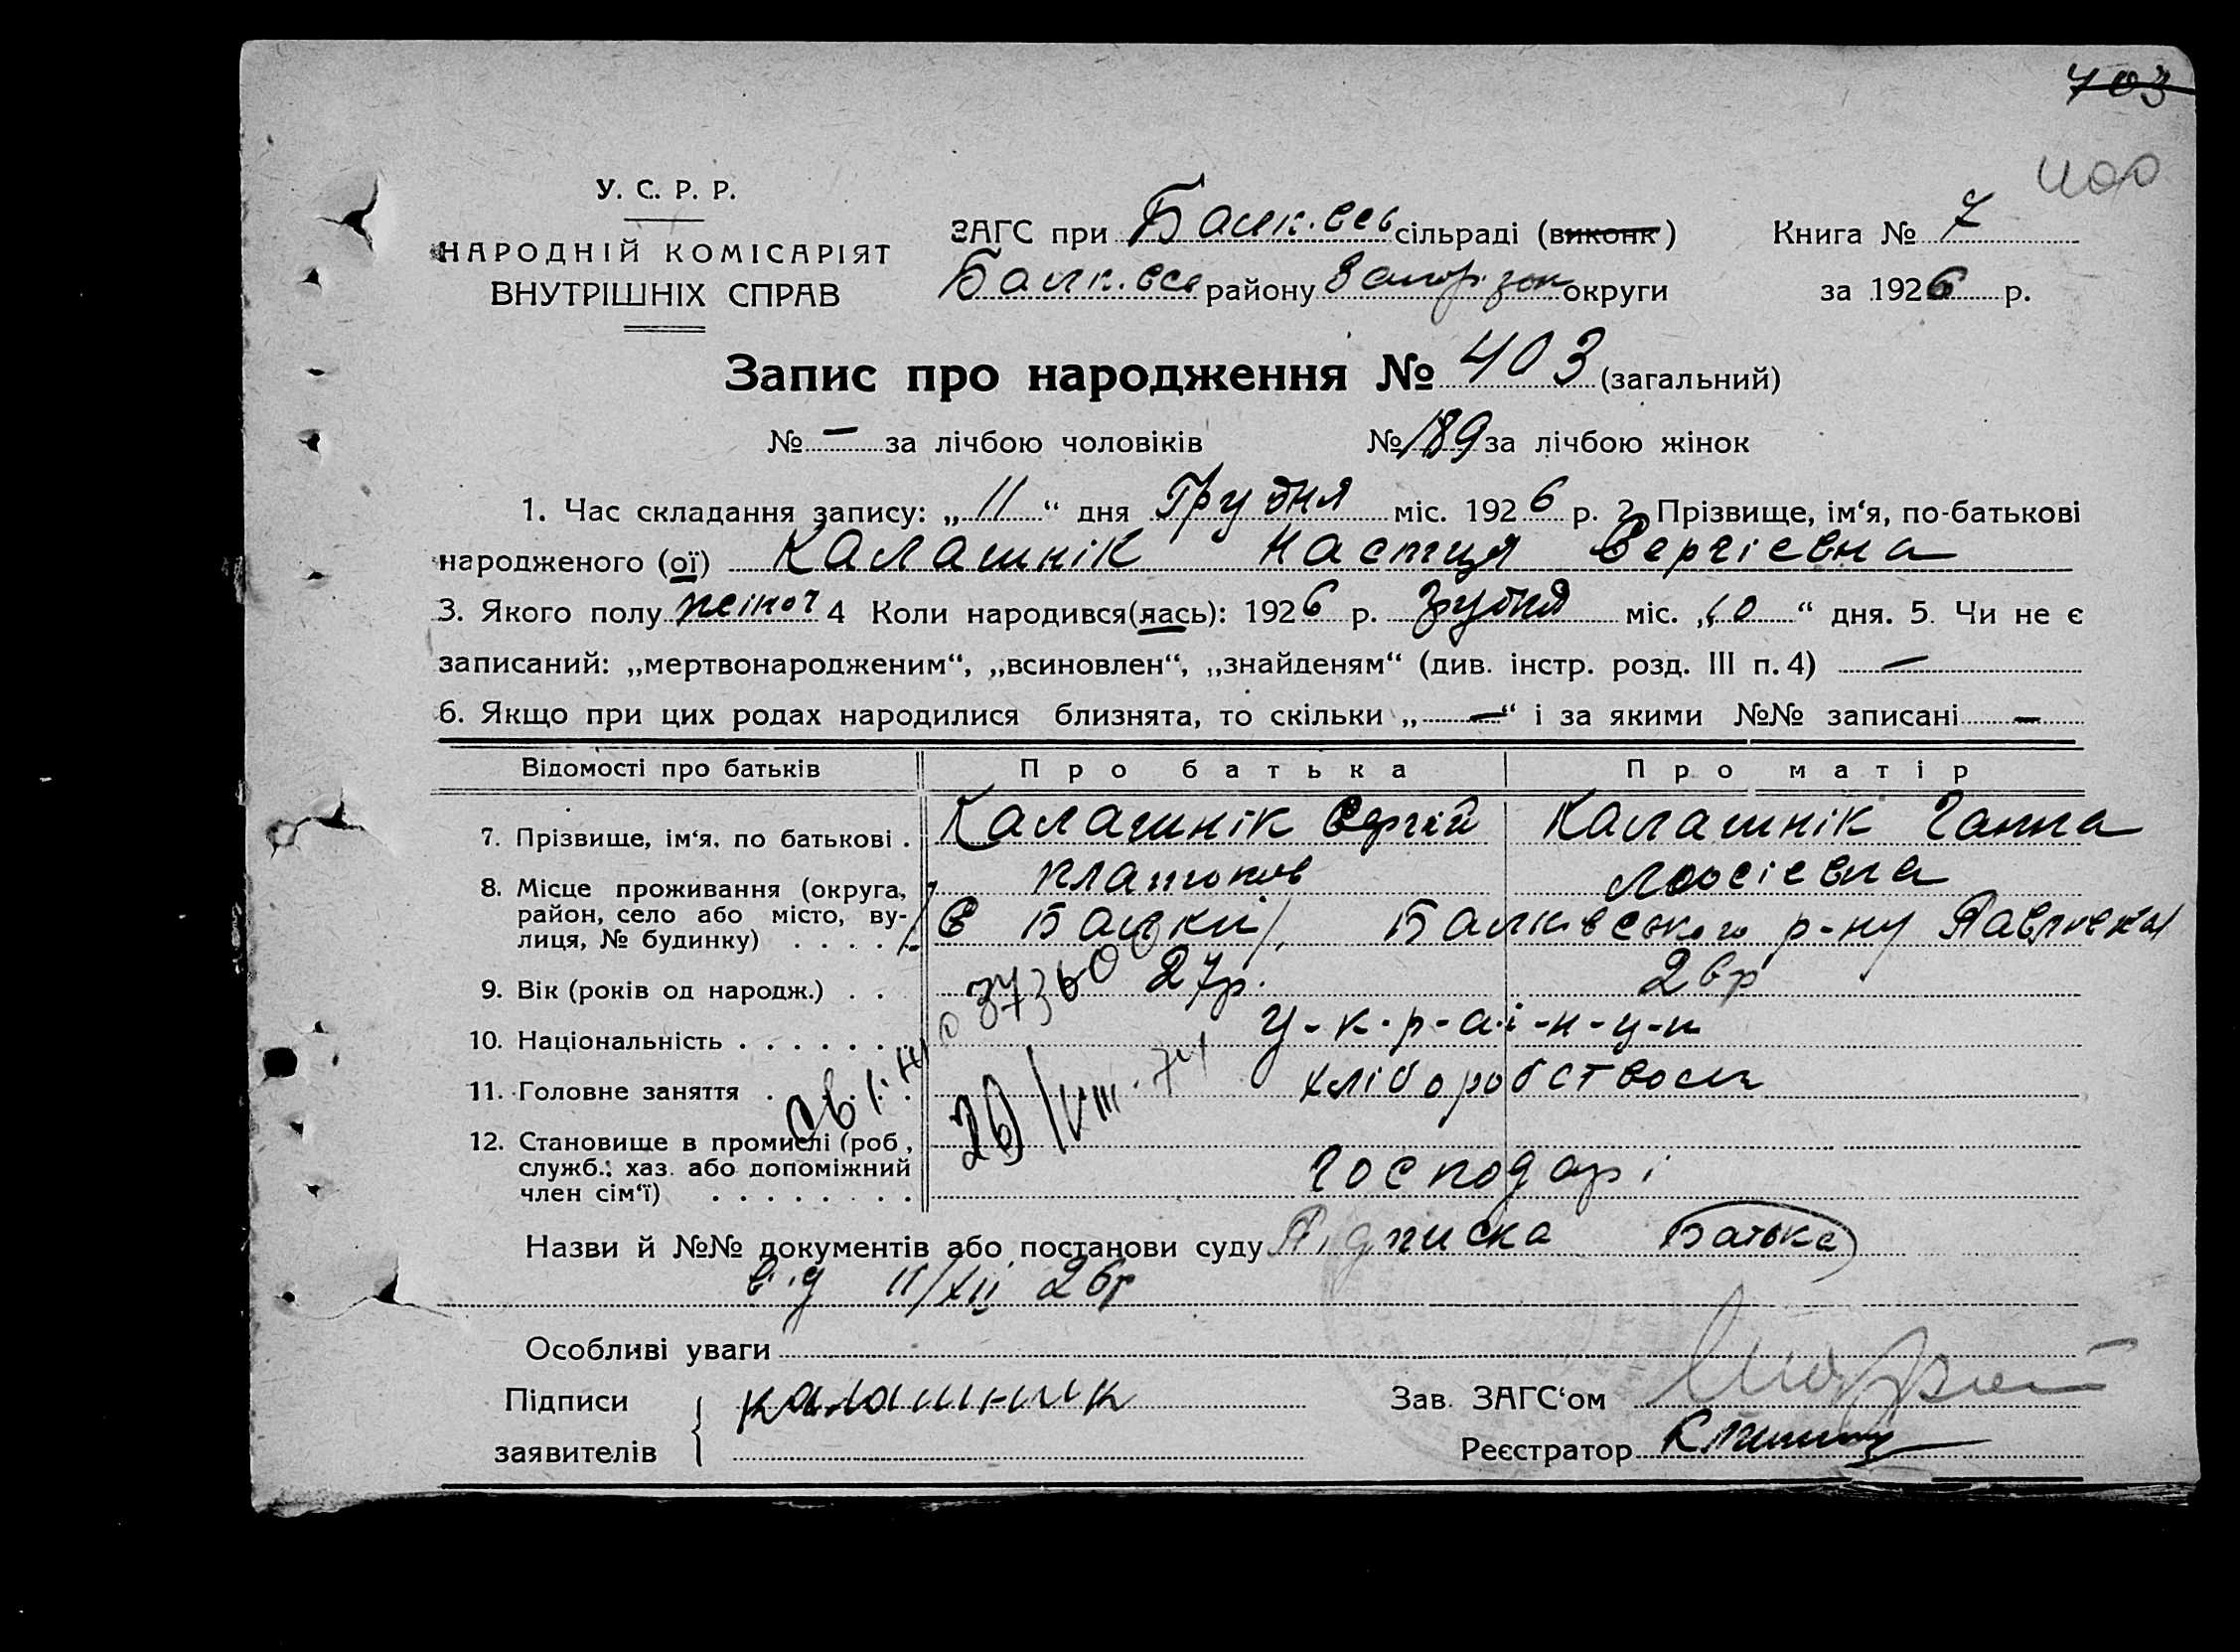 403
400
У. С. Р. Р.
НАРОДНІЙ КОМІСАРІЯТ
ВНУТРІШНІХ СПРАВ
ЗАГС при Балк.всь сільраді (виконк)
Балк.всь району Запоріж округи
Книга № 7
за 1926 р.
Запис про народження № 403 (загальний)
№ — за лічбою чоловіків № 189 за лічбою жінок
1. Час складання запису: „11“ дня Грудня міс. 1926 р. 2. Прізвище, ім‘я, по-батькові
народженого (ої) Калашнік Настця Сергієвна
3. Якого полу жіноч 4 Коли народився(лась): 1926 р. грудня міс. „10“ дня. 5. Чи не є
записаний: „мертвонародженим“, „всиновлен“, „знайденям“ (див. інстр. розд. III п. 4) —
6. Якщо при цих родах народилися близнята, то скільки „—“ і за якими №№ записані —
Відомості про батьків Про батька Про матір
7. Прізвище, ім‘я, по батькові . Калашнік Сергій Калашнік Ганна
8. Місце проживання (округа, район, село або місто, вулиця, № будинку) . . . .
с Балки Балківського р-ну
9. Вік (років од народж.) . . 27р. 26р
10. Національність . . . . . . У-к-р-а-ї-н-ц-и
11. Головне заняття . . . . хліборобством
20/VIII-74
12. Становище в промислі (роб., служб., хаз. або допоміжний член сім‘ї) . . . . . . . .
господарі
Назви й №№ документів або постанови суду Підписка Батька
від 11/XII 26р
Особливі уваги
Підписи
заявителів
калашник
Зав. ЗАГС‘ом
Реєстратор